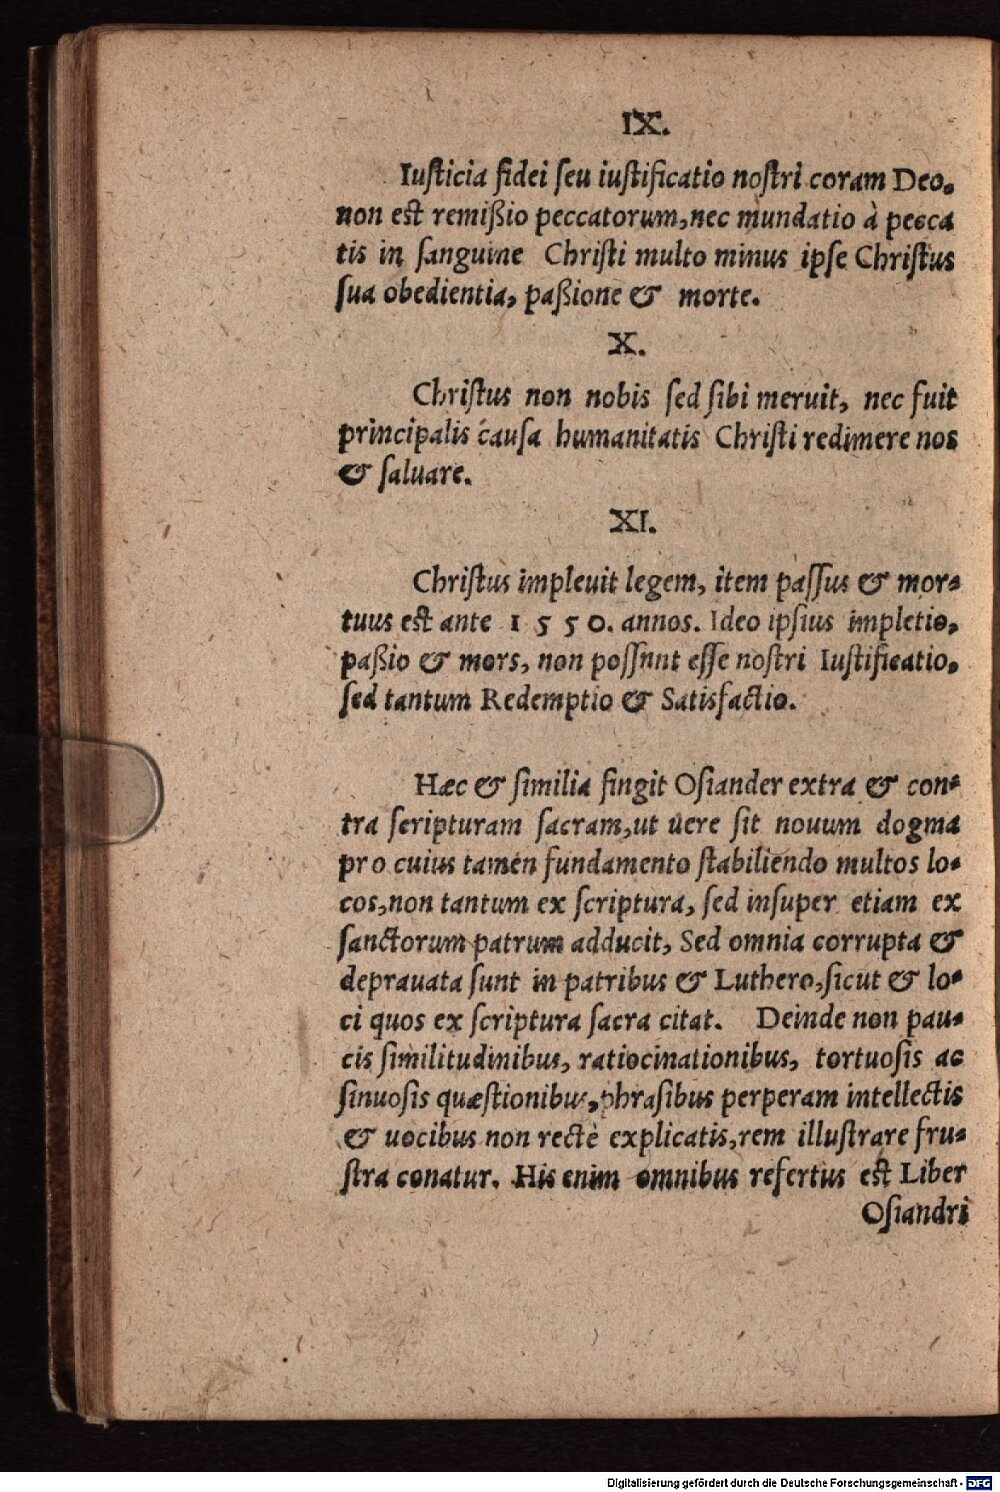 IX.
Iuſticia fidei ſeu iuſtificatio noſtri coram Deo.
non est remißio peccatorum, nec mundatio à pecca
tis in ſanguine Chriſti multo minus ipſe Chriſtus
ſua obedientia, paßione & morte.
X.
Chriſtus non nobis ſed ſibi meruit, nec fuit
principalis cauſa humanitatis Chriſti redimere nos
& ſaluare.
XI.
Chriſtus impleuit legem, item paſſus & mor-
tuus est ante 1550. annos. Ideo ipſius impletio,
paßio & mors, non poſſnnt eſſe noſtri Iuſtificatio,
ſed tantum Redemptio & Satisfactio.
Hæc & ſimilia fingit Oſiander extra & con-
tra ſcripturam ſacram, ut uere ſit nouum dogma
pro cuius tamen fundamento ſtabiliendo multos lo-
cos, non tantum ex ſcriptura, ſed inſuper etiam ex
ſanctorum patrum adducit, Sed omnia corrupta &
deprauata ſunt in patribus & Luthero, ſicut & lo-
ci quos ex ſcriptura ſacra citat. Deinde non pau-
cis ſimilitudinibus, ratiocinationibus, tortuoſis ac
ſinuoſis quæſtionibus, phraſibus perperam intellectis
& uocibus non rectè explicatis, rem illuſtrare fru-
ſtra conatur. His enim omnibus refertus est Liber
Oſiandri
Digitalisierung gefördert durch die Deutsche Forschungsgemeinschaft - DFG